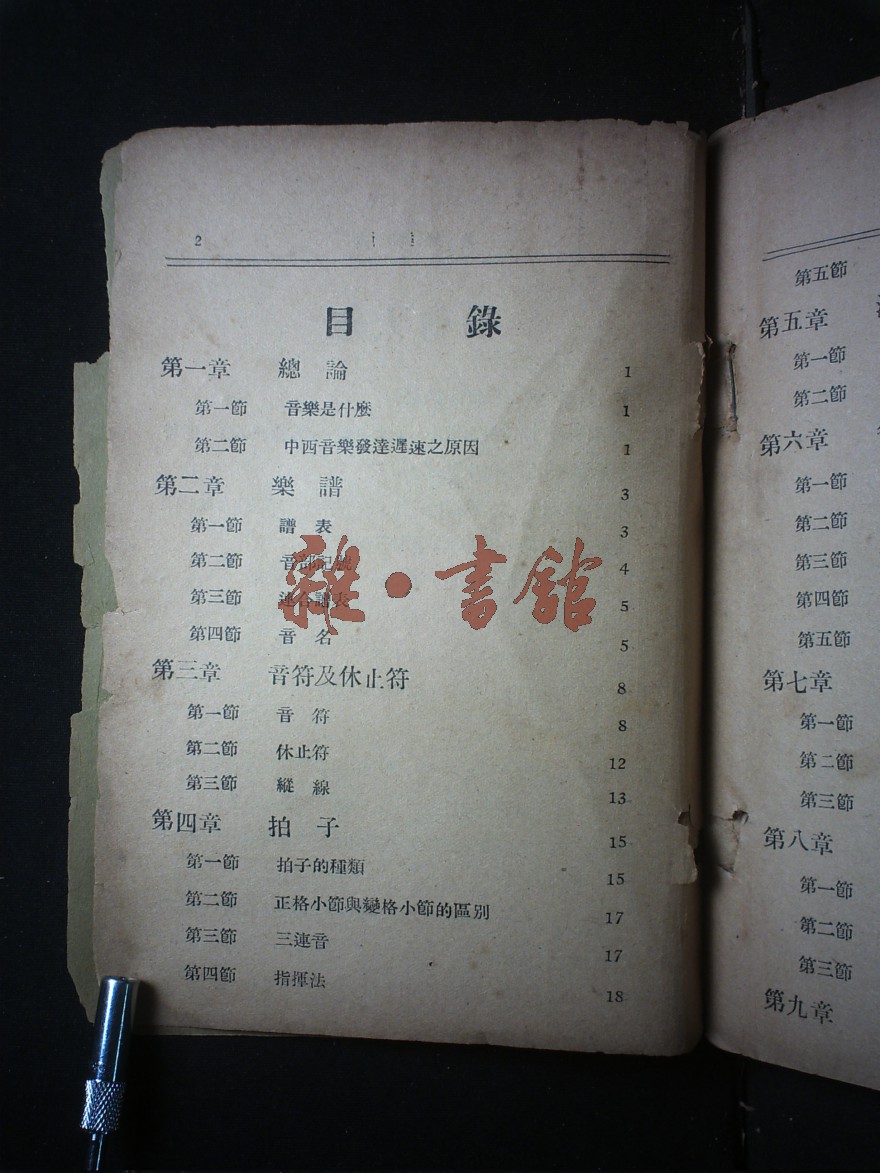 2
目錄
第一章 總論 1
第一節 音樂是什麽 1
第二節 中西音樂發達遲速之原因 1
第二章 樂譜 3
第一節 譜表 3
第二節 音部記號 4
第三節 連合譜表 5
第四節 音名 5
第三章 音符及休止符 8
第一節 音符 8
第二節 休止符 12
第三節 縱線 13
第四章 拍子 15
第一節 拍子的種類 15
第二節 正格小節與變格小節的區别 17
第三節 三連音 17
第四節 指揮法 18
雜·書館
第五節
第五章
第一節
第二節
第六章
第一節
第二節
第三節
第四節
第五節
第七章
第一節
第二節
第三節
第八章
第一節
第二節
第三節
第九章